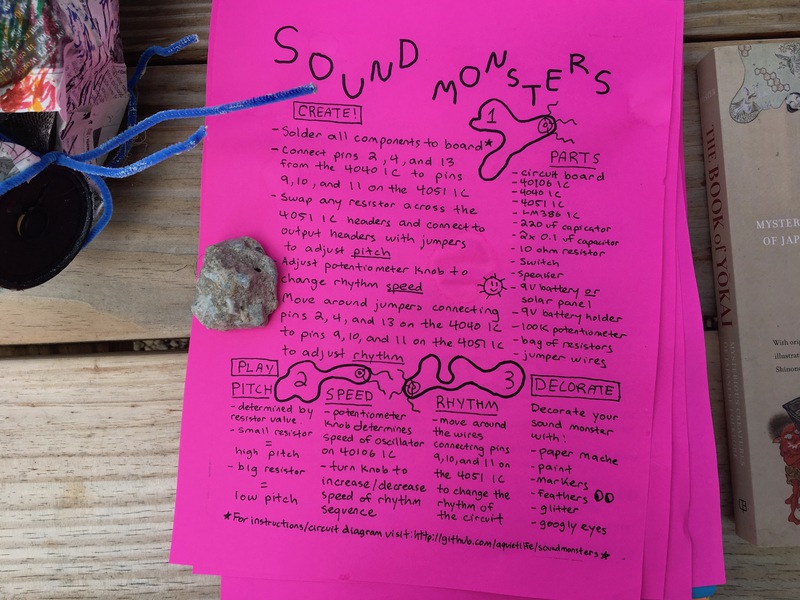 SOUND MONSTERS
CREATE!
- Solder all components to board*
- Connect pins 2, 4, and 13
from the 4040 IC to pins
9, 10, and 11 on the 4051 IC
- Swap any resistor across the
4051 IC headers and connect to
output headers with jumpers
to adjust pitch
Adjust potentiometer knob to
change rhythm speed
Move around jumpers connecting
pins 2, 4, and 13 on the 4040 IC
to pins 9, 10, and 11 on the 4051 IC
to adjust rhythm
1
PARTS
- circuit board
- 40106 IC
- 4040 IC
- 4051 IC
- LM386 IC
- 220 uf capicator
- 2x 0.1 uf capacitor
- 10 ohm resistor
- Switch
- Speaker
- 9V battery or
solar panel
- 9V battery holder
- 100K potentiometer
- bag of resistors
- jumper wires
PLAY
2
3
PITCH
- determined by
resistor value.
- small resistor
=
high pitch
- big resistor
=
low pitch
SPEED
- potentiometer
knob determines
speed of oscillator
on 40106 IC
- turn knob to
increase/decrease
speed of rhythm
sequence
RHYTHM
- move around
the wires
connecting pins
9, 10, and 11 on
the 4051 IC
to change the
rhythm of
the circuit
DECORATE
Decorate your
sound monster
with:
- paper mache
- paint
- markers
- feathers
- glitter
- googly eyes
*For instructions/circuit diagram visit: http://github.com/aquietlife/soundmonsters*
THE BOOK of YOKAI
MYSTER
OF JAP
With ori
illustrat
Shinon